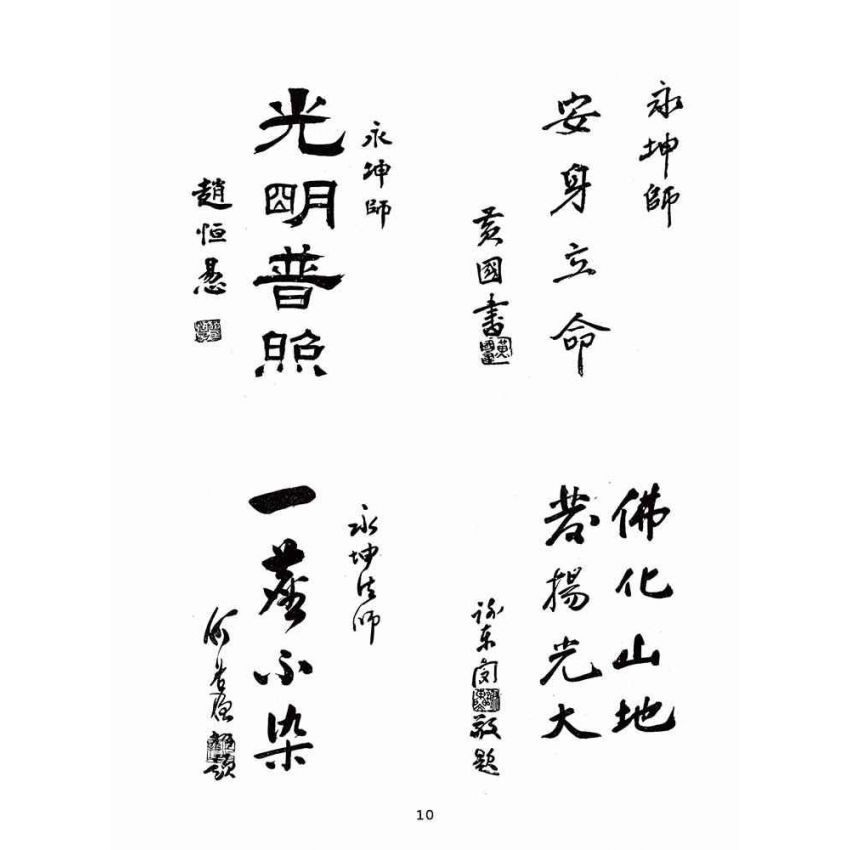 永坤師
安身立命
黃國書
永坤師
光明普照
趙恒惖
佛化山地
發揚光大
謝東閔敬題
永坤法師
一塵不染
何應欽敬題
10